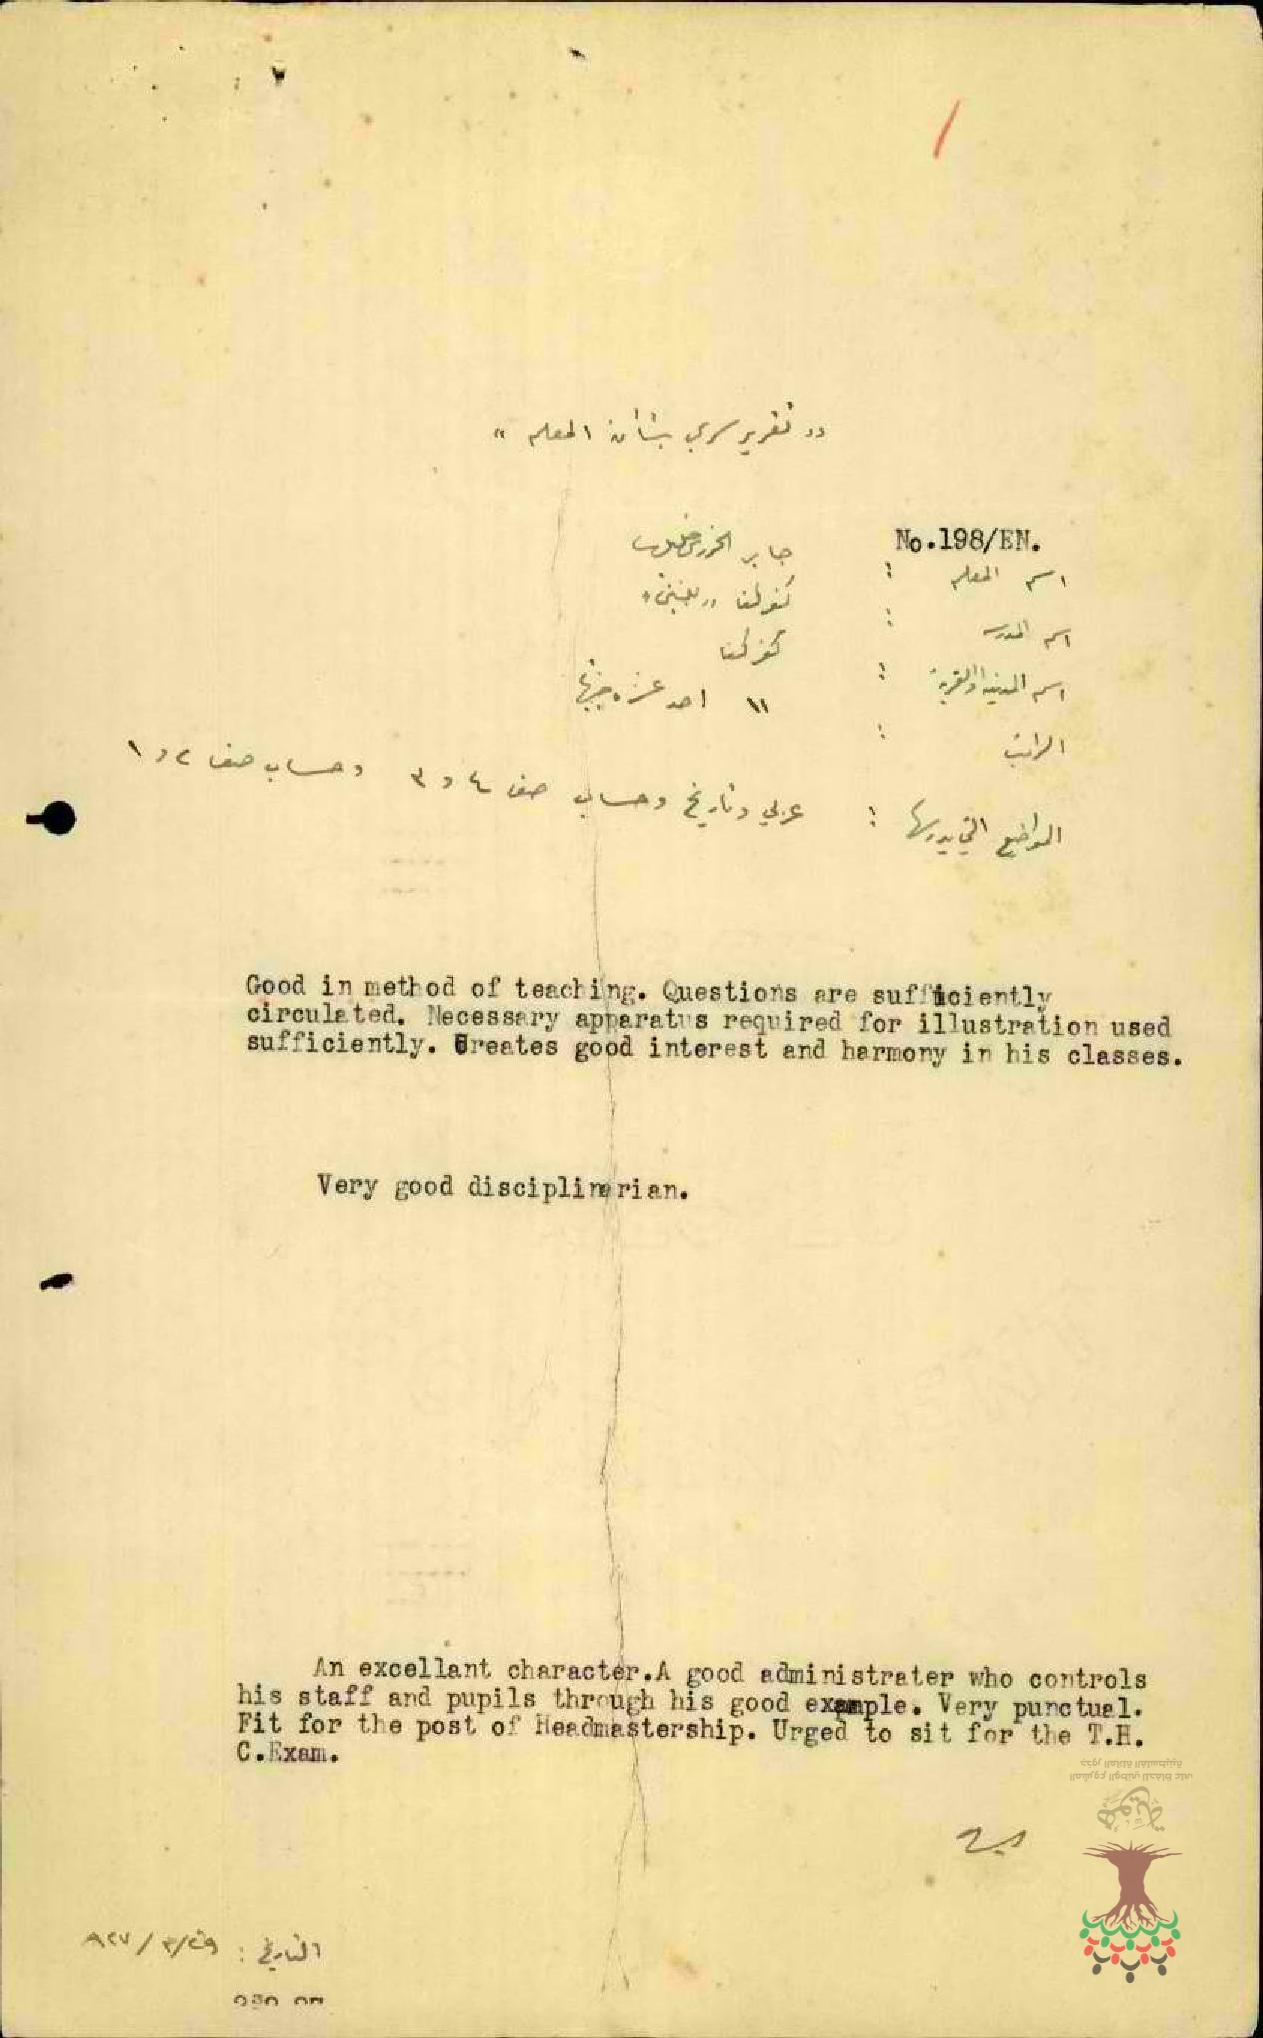 " تقرير سري بشأن المعلم "
No.198/EN.
اسم المعلم : جابر الخوري
اسم المدرسه : كفركنا
اسم المدينه او القرية : كفركنا
الراتب : ١١ احد عشر جنيها
المواضيع التي يدرسها : عربي وتاريخ وحساب صف ٤ و ٣ وحساب صف ٢ و ١
Good in method of teaching. Questions are sufficiently
circulated. Necessary apparatus required for illustration used
sufficiently. Creates good interest and harmony in his classes.
Very good disciplinarian.
An excellant character.A good administrater who controls
his staff and pupils through his good example. Very punctual.
Fit for the post of Headmastership. Urged to sit for the T.H.
C.Exam.
المشروع الوطني للحفاظ على
جذور العائلة الفلسطينية
التاريخ : ٢٩/٣/٩٢٧